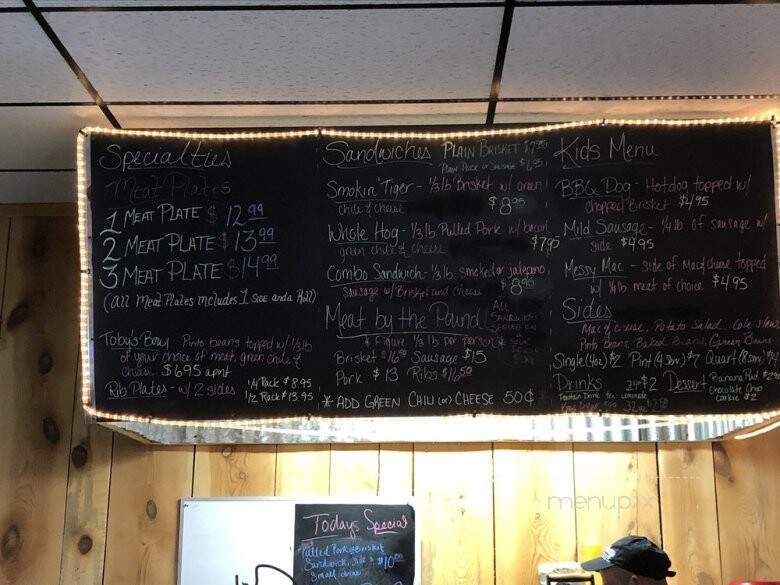 Specialties
Meat Plates
1 MEAT PLATE $ 12.99
2 MEAT PLATE $ 13.99
3 MEAT PLATE $14.99
(all meat Plates includes 1 side and a Roll)
Pinto beans topped w/ 1/3lb
of your choice of meat, green chile &
cheese $6.95 a pint
Rib Plates - w/ 2 sides 1/4 Rack $8.95
1/2 Rack $13.95
Sandwiches PLAIN BRISKET $7.95
$6.95
Smokin' Tiger - 1/3 lb Brisket w/ green
chile & cheese $8.95
Whole Hog - 1/3 lb Pulled Pork w/ bacon
green chile & cheese $7.95
Combo Sandwich - 1/2 lb smoked or jalapeno
Sausage w/ Brisket and cheese $8.95
Meat by the Pound
Figure 1/3 lb per person
ALL SANDWICHES SERVED ON
Brisket $16.50 Sausage $15
Pork $13 Ribs $16.50
* ADD GREEN CHILI (or) CHEESE 50¢
Kids Menu
BBQ Dog - Hotdog topped w/
chopped Brisket $4.95
Mild Sausage - 1/4 lb of sausage w/
side $4.95
Messy Mac - side of Mac & cheese topped
w/ 1/4 lb meat of choice $4.95
Sides
Mac & cheese, Potato Salad, Cole slaw
Pinto Beans, Baked Beans, Green Beans
Single (4oz) $2 Pint (4 serv.) $7 Quart (8 serv.)
Drinks 24oz $2 Dessert Banana Pud
Chocolate Chip
cookie $2
32oz
Todays Special
Pulled Pork or Brisket
Sandwich, Side & $10
Small drink
menupix